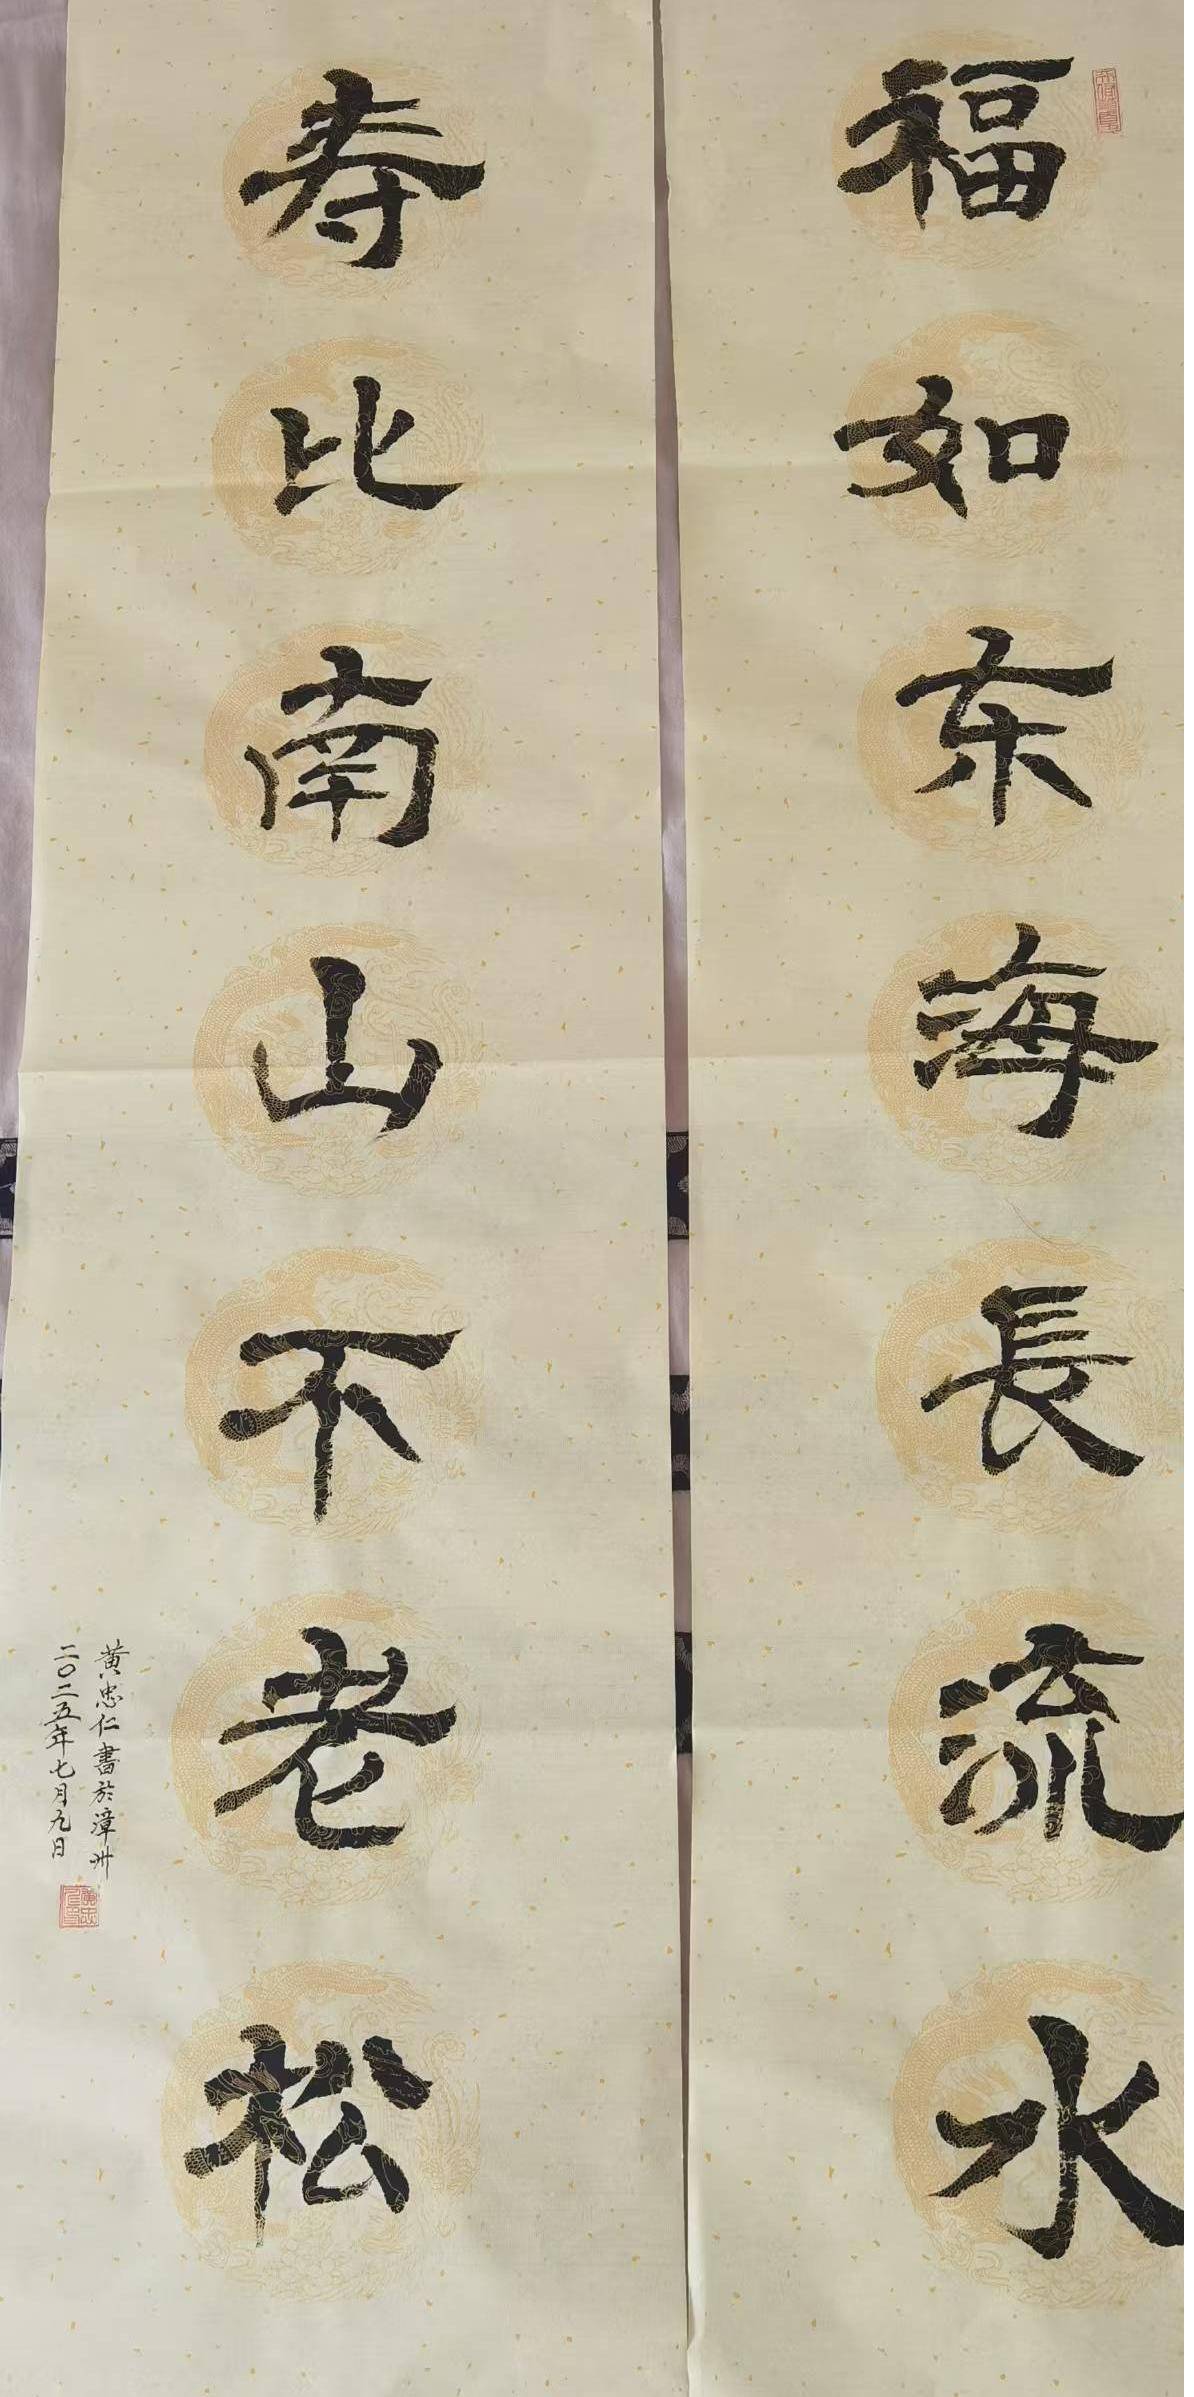 福如东海長流水
寿比南山不老松
黄忠仁書於漳州
二〇二五年七月九日